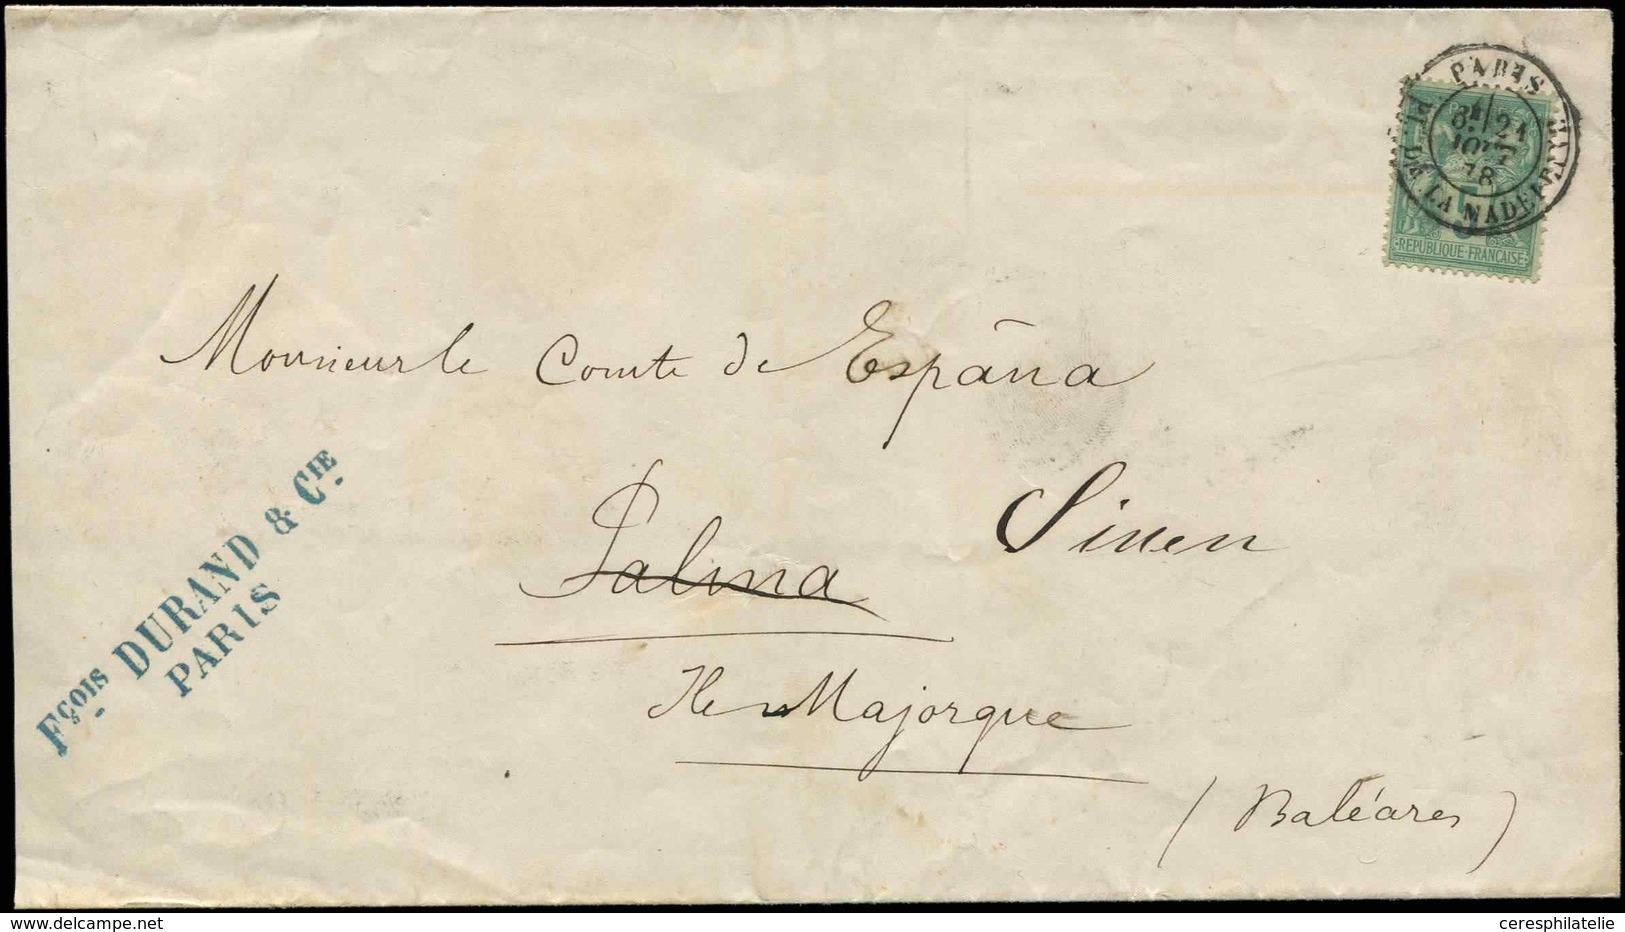 PARIS
PL. DE LA MADELEINE
21
78
5
REPUBLIQUE FRANÇAISE
Monsieur le Comte de España
Palma Sineu
Ile Majorque
(Baléares)
Fçois DURAND & Cie
PARIS
ceresphilatelie